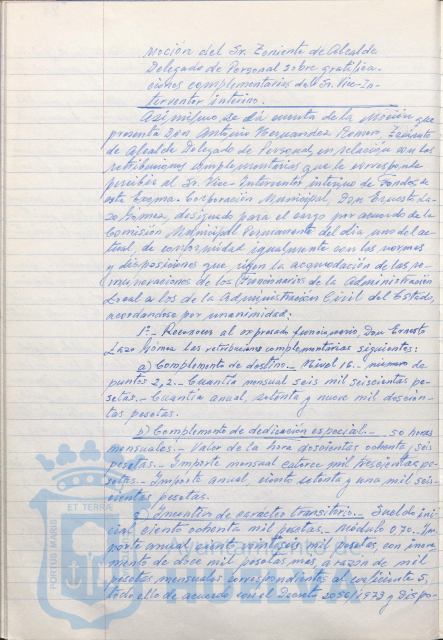 Moción del Sr. Teniente de Alcalde
Delegado de Personal sobre gratifica-
ciones complementarias del Sr. Vice-In-
terventor interino.
Asimismo se dá cuenta de la Moción que
presenta Don Antonio Hernandez Romero, Teniente
de Alcalde Delegado de Personal, en relación con las
retribuciones complementarias que le corresponde
percibir al Sr. Vice-Interventor interino de Fondos de
esta Excma. Corporación Municipal, Don Ernesto La-
zo Gómez, designado para el cargo por acuerdo de la
Comisión Municipal Permanente del dia uno del ac-
tual, de conformidad igualmente con las normas
y disposiciones que rigen la acomodación de las re-
muneraciones de los Funcionarios de la Administración
Local a los de la Administración Civil del Estado,
acordandose por unanimidad:
1º.- Reconocer al expresado funcionario, Don Ernesto
Lazo Gómez las retribuciones complementarias siguientes:
a) Complemento de destino.- Nivel 16.- número de
puntos 2,2.- Cuantia mensual seis mil seiscientas pe-
setas.- Cuantia anual, setenta y nueve mil doscien-
tas pesetas.
b) Complemento de dedicación especial.- 50 horas
mensuales.- Valor de la hora doscientas ochenta y seis
pesetas.- Importe mensual catorce mil trescientas pe-
setas.- Importe anual, ciento setenta y una mil seis-
cientas pesetas.
c) Incentivo de caracter transitorio.- Sueldo ini-
cial ciento ochenta mil pesetas.- Módulo 0,70.- Im-
porte anual ciento veintiseis mil pesetas, con incre-
mento de doce mil pesetas mas, a razón de mil
pesetas mensuales correspondientes al coeficiente 5,
todo ello de acuerdo con el Decreto 2056/1973 y dispo-
ET TERRÆ
PORTUS MARIS
Ayuntamiento de
HUELVA